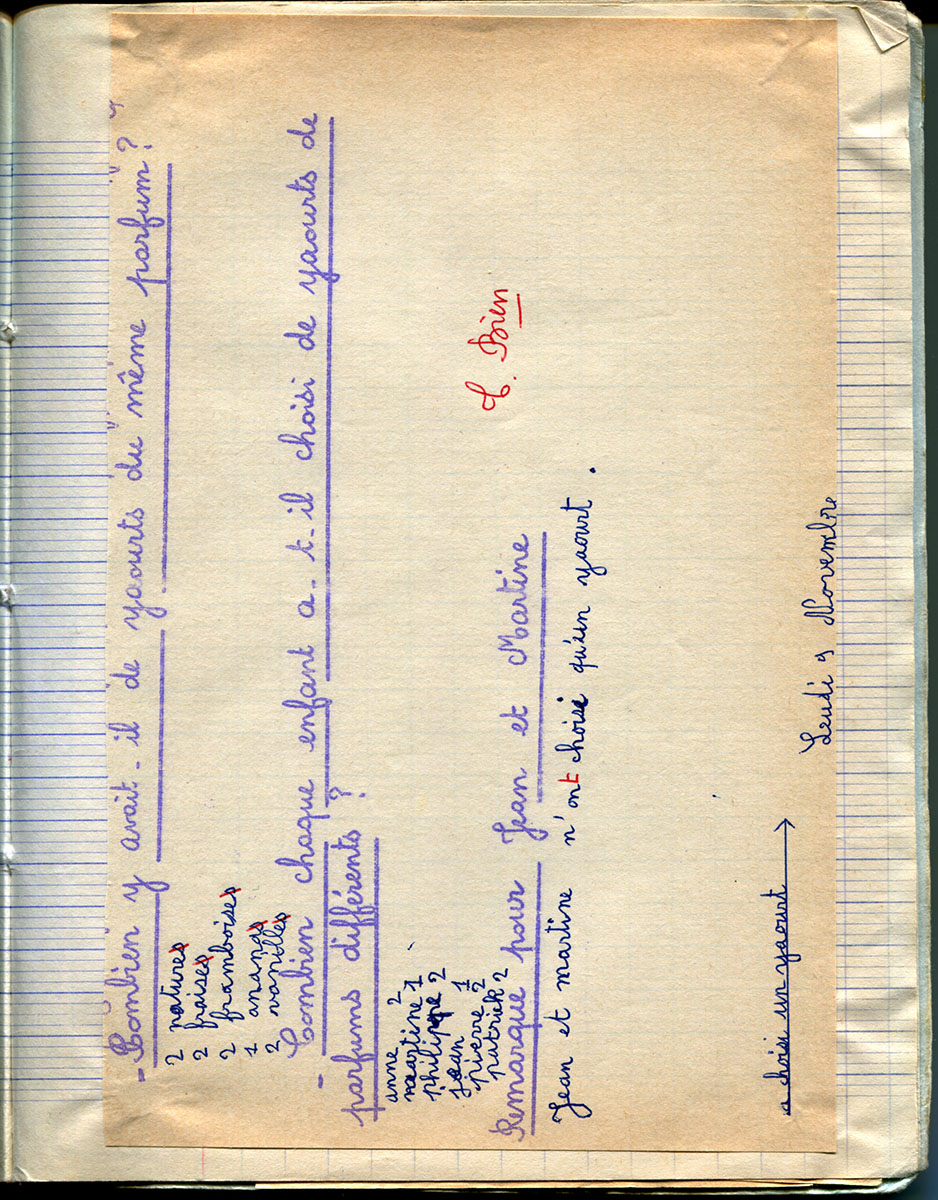 - Combien y avait-il de yaourts du même parfum ?
2 natures
2 fraises
2 framboises
1 ananas
2 vanilles
- Combien chaque enfant a-t-il choisi de yaourts de
parfums différents ?
anne 2
martine 1
philippe 2
jean 1
pierre 2
patrick 2
Remarque pour Jean et Martine
Jean et martine n'ont choisi qu'un yaourt.
T. Bien
a choisi un yaourt
Jeudi 9 Novembre